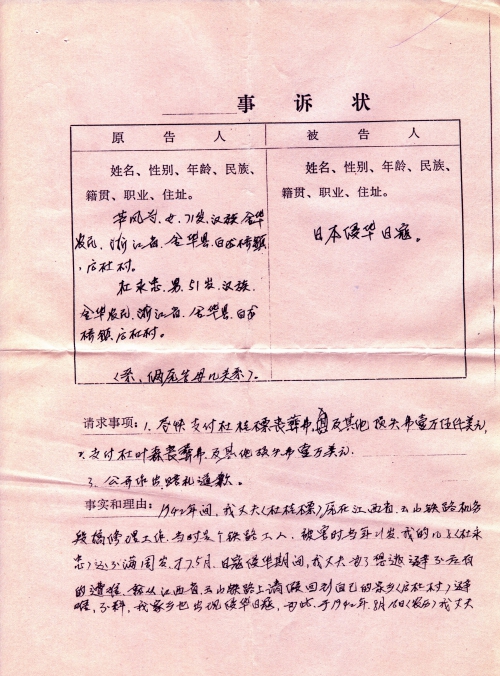 事诉状
原告人
被告人
姓名、性别、年龄、民族、
籍贯、职业、住址。
姓名、性别、年龄、民族、
籍贯、职业、住址。
女、71岁、汉族、金华
农民、浙江省、金华县、白龙桥镇
、后杜村。
日本侵华日寇。
杜永忠、男、51岁、汉族、
金华农民、浙江省、金华县、白龙
桥镇后杜村。
请求事项：1、尽快支付杜桂标丧葬弗及其他损失弗壹万伍仟美元、
2、支付杜叶森丧葬弗及其他损失弗壹万美元、
3、公开作出赔礼道歉。
事实和理由：1942年间，我丈夫（杜桂标）原在江西省、云山铁路机务
段搞修理工作、当时是个铁路工人、被害时年 岁、我的儿子（杜永
忠）还不满周岁、才7.5月、日寇侵华期间，我丈夫为了想逃避不应有
的遭难、就从江西省、云山铁路上请假回到自己的家乡（后杜村）避
难、不料，我家乡也出现侵华日寇， 于1942年、8月16日（农历）我丈夫